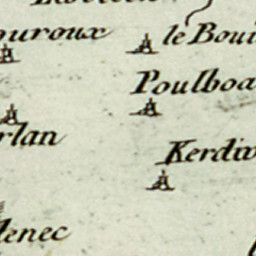 ouroux
le Boui
Poulboa
rlan
Kerdiv
lenec